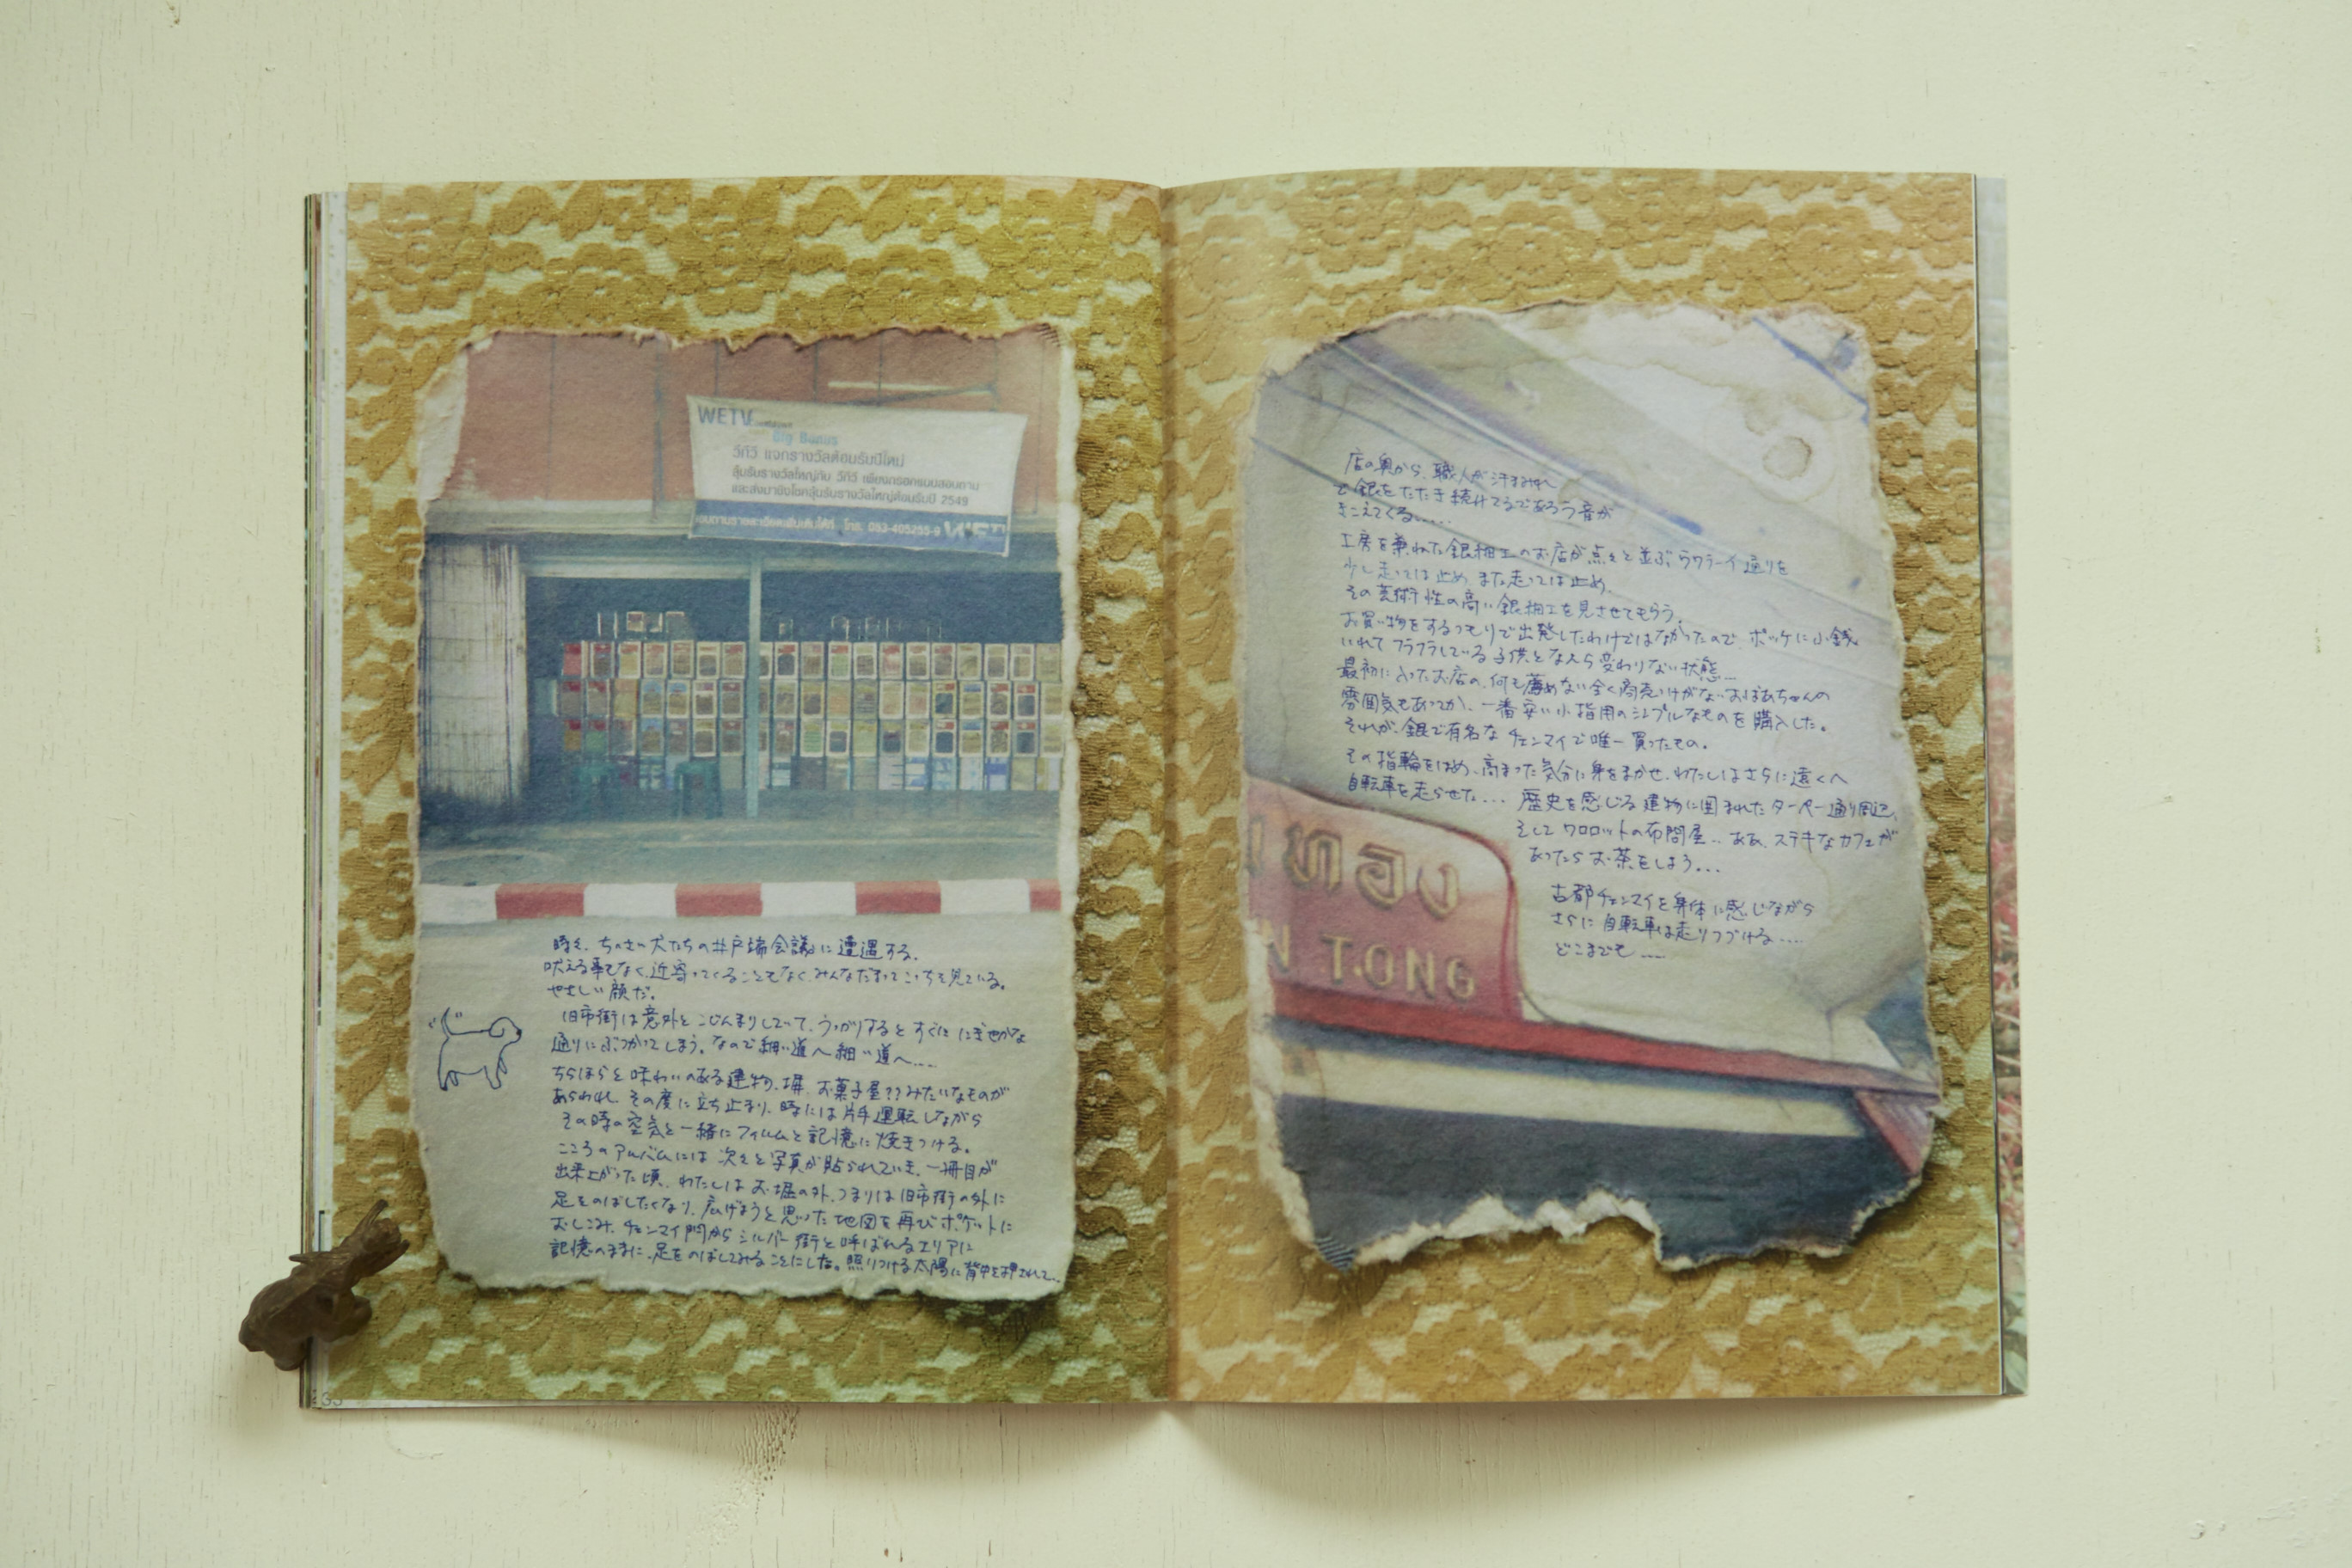 WETV
Big Bonus
วีทีวี แจกรางวัลต้อนรับปีใหม่
ลุ้นรับรางวัลใหญ่กับ วีทีวี เพียงกรอกแบบสอบถาม
และส่งมาชิงโชคลุ้นรับรางวัลใหญ่ต้อนรับปี 2549
สอบถามรายละเอียดเพิ่มเติมได้ที่ โทร. 053-405255-9 WETV
時々、ちいさい犬たちの井戸端会議に遭遇する。
吠える事もなく、近寄ってくることもなく、みんなだまってこっちを見ている。
やさしい顔だ。
旧市街は意外とこじんまりしていて、うっかりするとすぐににぎやかな
通りにぶつかってしまう。なので細い道へ細い道へ……
ちらほらと味わいのある建物、塀、お菓子屋??みたいなものが
あらわれ、その度に立ち止まり、時には片手運転しながら
その時の空気と一緒にフィルムと記憶に焼きつける。
こころのアルバムには次々と写真が貼られていき、一冊目が
出来上がった頃、わたしはお堀の外、つまりは旧市街の外に
足をのばしたくなり、広げようと思った地図を再びポケットに
おしこみ、チェンマイ門からシルバー街と呼ばれるエリアに
記憶のままに、足をのばしてみることにした。照りつける太陽に背中を押されて…
店の奥から、職人が汗まみれ
で銀をたたき続けてるであろう音が
きこえてくる……
工房を兼ねた銀細工のお店が点々と並ぶ ラワーイ通りを
少し走っては止め、また走っては止め、
その芸術性の高い銀細工を見させてもらう。
お買い物をするつもりで出発したわけではなかったので、ポッケに小銭
いれてフラフラしている子供となんら変わりない状態…
最初に入ったお店の、何も薦めない全く商売いけがないおばあちゃんの
雰囲気もあってか、一番安い小指用のシンプルなものを購入した。
それが、銀で有名なチェンマイで唯一買ったもの。
その指輪をはめ、高まった気分に身をまかせ、わたしはさらに遠くへ
自転車を走らせた… 歴史を感じる建物に囲まれたターペー通り周辺、
そしてワロロットの布問屋… ああ、ステキなカフェが
あったらお茶をしよう…
古都チェンマイを身体に感じながら
さらに自転車は走りつづける……
どこまでも……
TONG
33